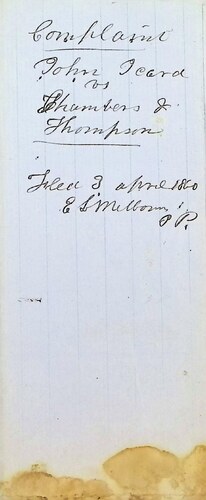 Complaint
John Icard
vs
Chambers &
Thompson
Filed 3 april 1860
E S Melborn
J P.